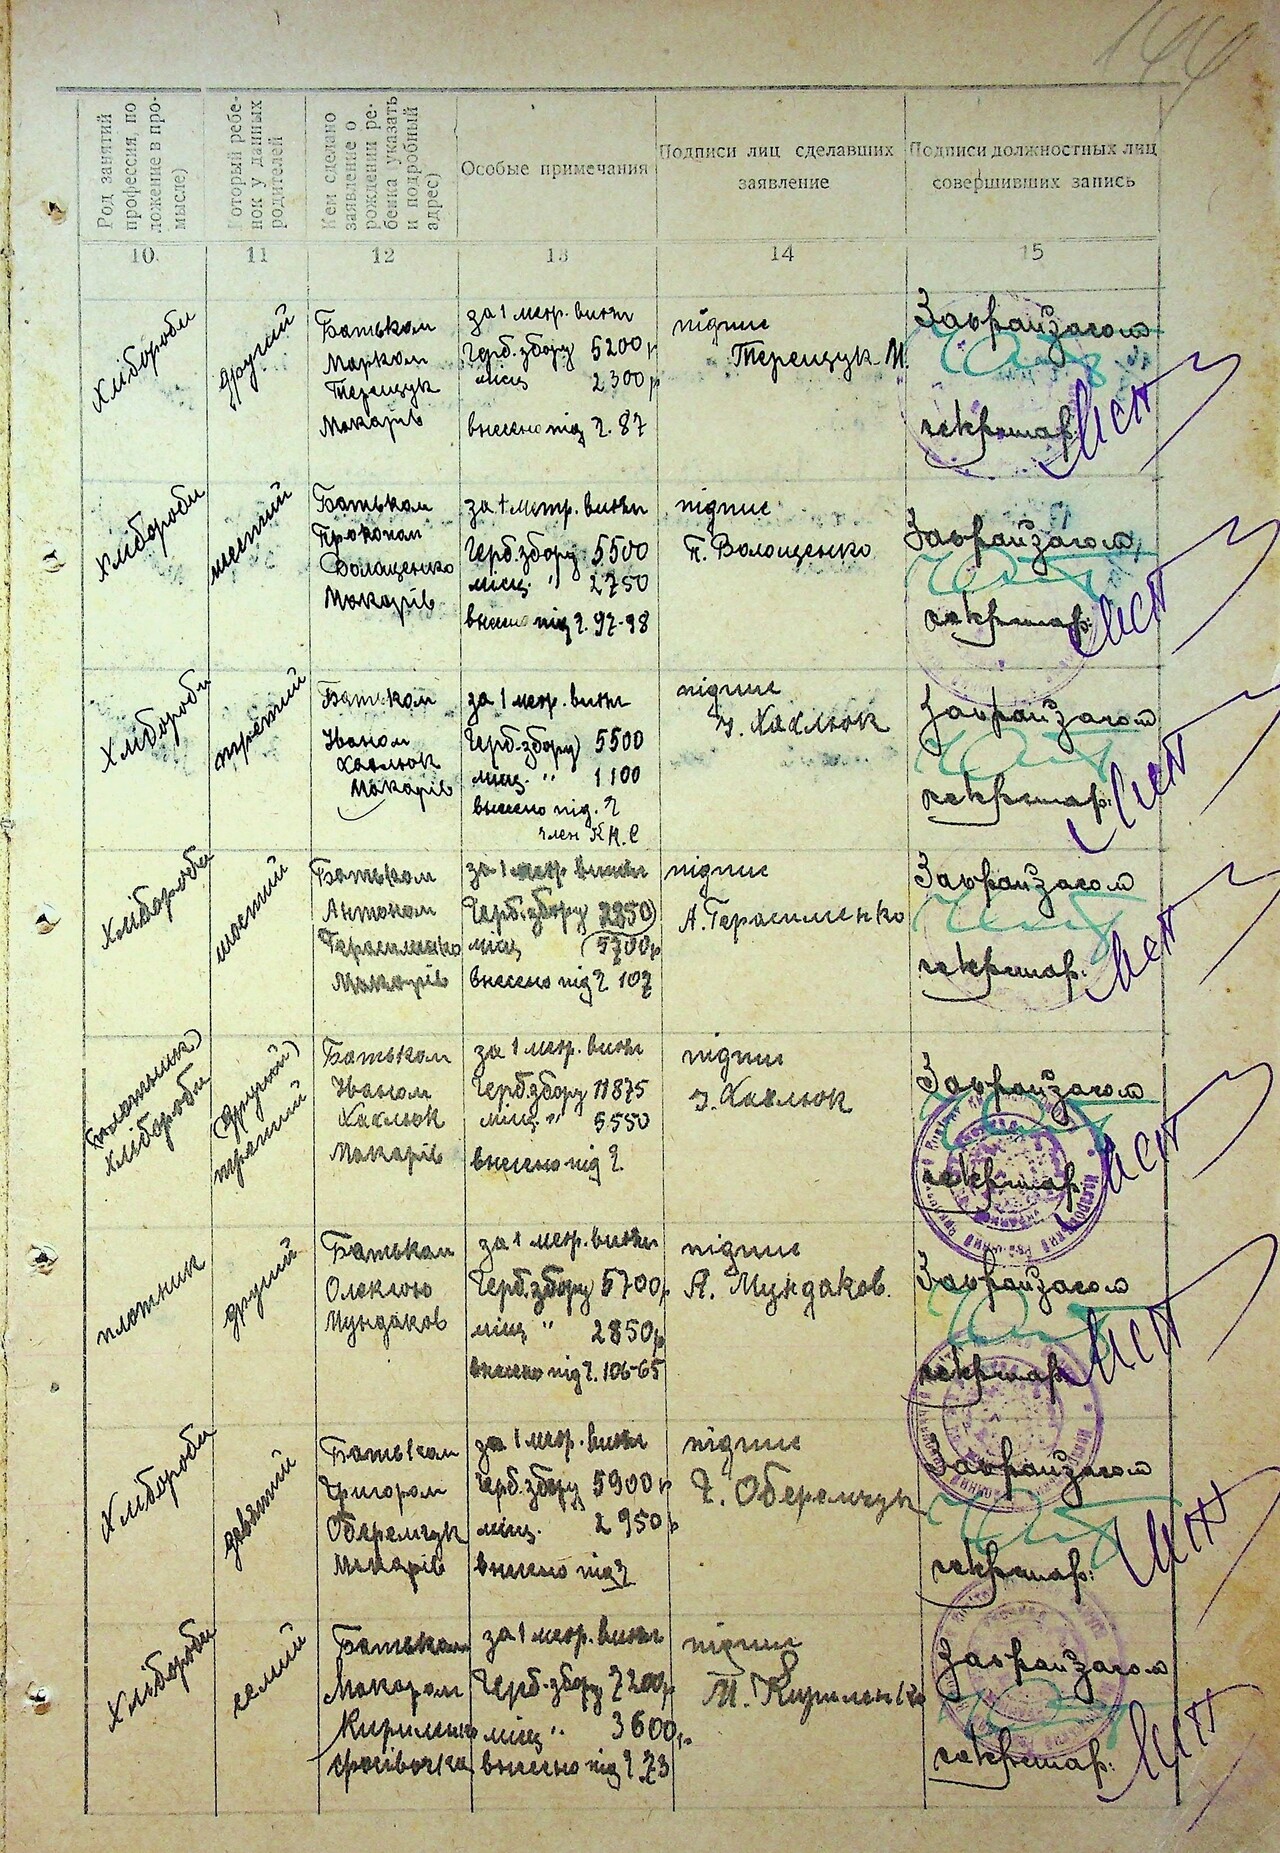 144
Род занятий
профессия, по
ложение в про-
мысле)
Который ребе-
нок у данных
родителей
Кем сделано
заявление о
рождении ре-
бенка указать
и подробный
адрес)
Особые примечания
Подписи лиц сделавших
заявление
Подписи должностных лиц
совершивших запись
10.
11
12
13
14
15
Хлібороби
другий
Батьком
Марком
Терещук
Макарів
за 1 метр. витяг
Герб. збору 5200 р
місц 2300 р
внесено під г. 87
підпис
Терещук М.
Заврайзагсом
секретар:
Хлібороби
шестий
Батьком
Прокопом
Волощенко
Макарів
за 1 метр. витяг
Герб. збору 5500
місц. " 2750
внесено під г. 97-98
підпис
П. Волощенко
Заврайзагсом
секретар:
Хлібороби
третий
Батьком
Іваном
Хахлюк
Макарів
за 1 метр. витяг
Герб. збору 5500
місц. " 1100
внесено під. г
член К.Н.С
підпис
І. Хахлюк
Заврайзагсом
секретар:
Хлібороби
шостий
Батьком
Антоном
Герасименко
Макарів
за 1 метр витяг
Герб. збору 2850
місц 5700 р
внесено під г 107
підпис
А. Герасименко
Заврайзагсом
секретар:
(плотник)
Хлібороби
(другий)
третий
Батьком
Іваном
Хахлюк
Макарів
за 1 метр. витяг
Герб. збору 11875
місц. " 5550
внесено під г.
підпис
І. Хахлюк
Заврайзагсом
секретар:
плотник
другий
Батьком
Олексою
Мундаков
за 1 метр. витяг
Герб. збору 5700 р
місц " 2850 р
внесено під г. 106-65
підпис
А. Мундаков.
Заврайзагсом
секретар:
Хлібороби
девятий
Батьком
Григором
Оберемчук
Макарів
за 1 метр. витяг
Герб. збору 5900 р
місц. 2950 р
внесено під г
підпис
Г. Оберемчук
Заврайзагсом
секретар:
Хлібороби
семий
Батьком
Макаром
Кириленко
Фасівочка
за 1 метр. витяг
Герб. збору 7200 р
місц " 3600 р.
внесено під г 73
підпис
М. Кириленко
Заврайзагсом
секретар: